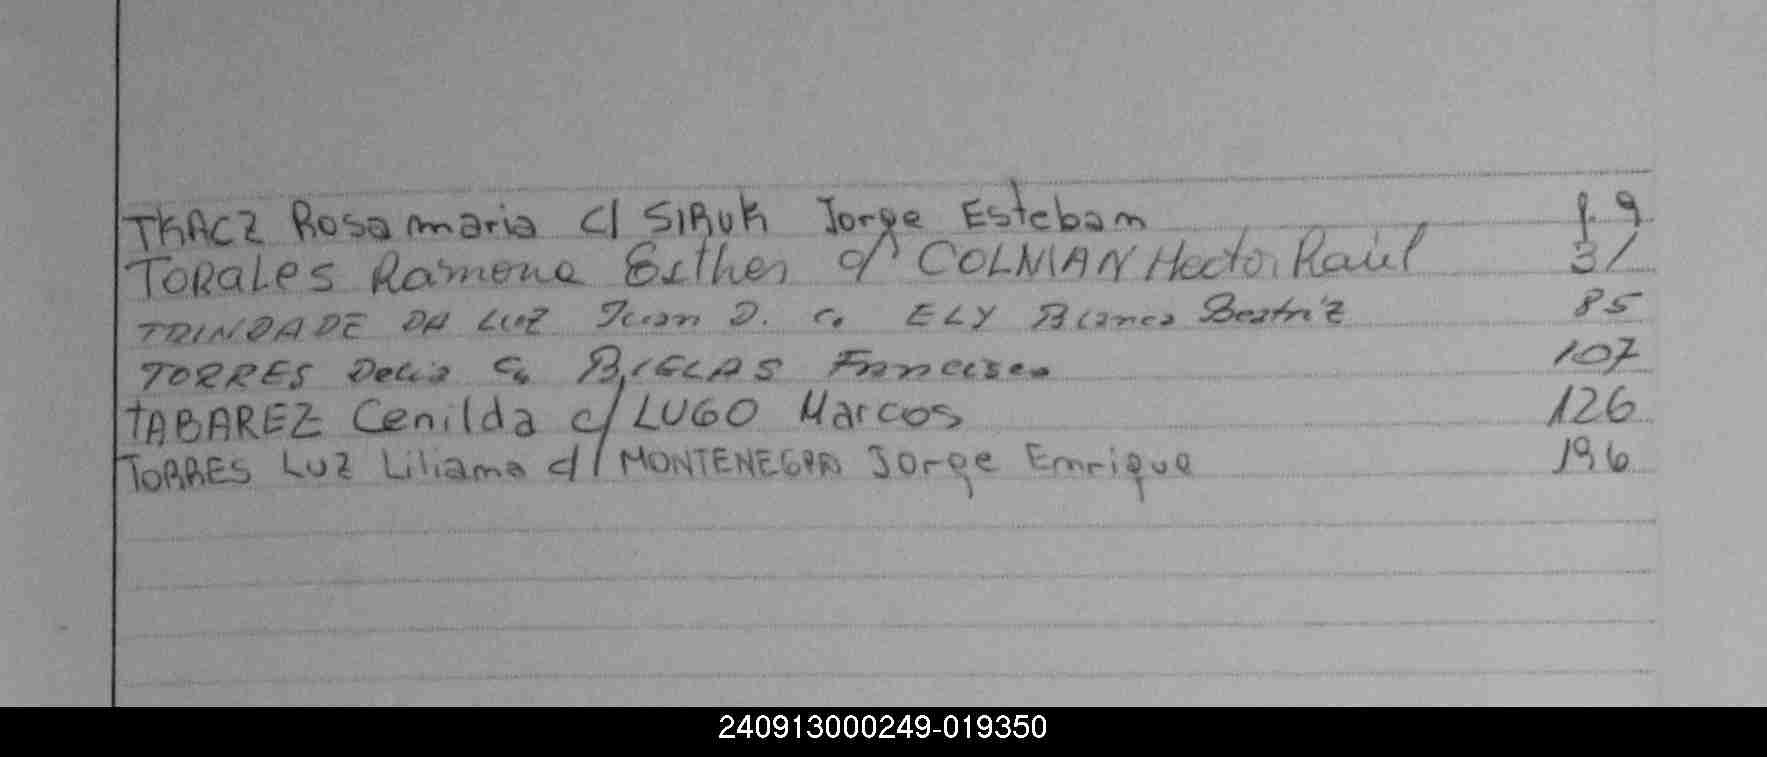 TKACZ Rosa maria c/ SIRUK Jorge Estebam f. 9
TORALES Ramona Esther c/ COLMAN Hector Raúl 31
TRINDADE DA LUZ Juan D. c. ELY Blanca Beatriz 85
TORRES Delia c. BIELAS Francisco 107
TABAREZ Cenilda c/ LUGO Marcos 126
TORRES LUZ Liliama c/ MONTENEGRO Jorge Emrique 196
240913000249-019350